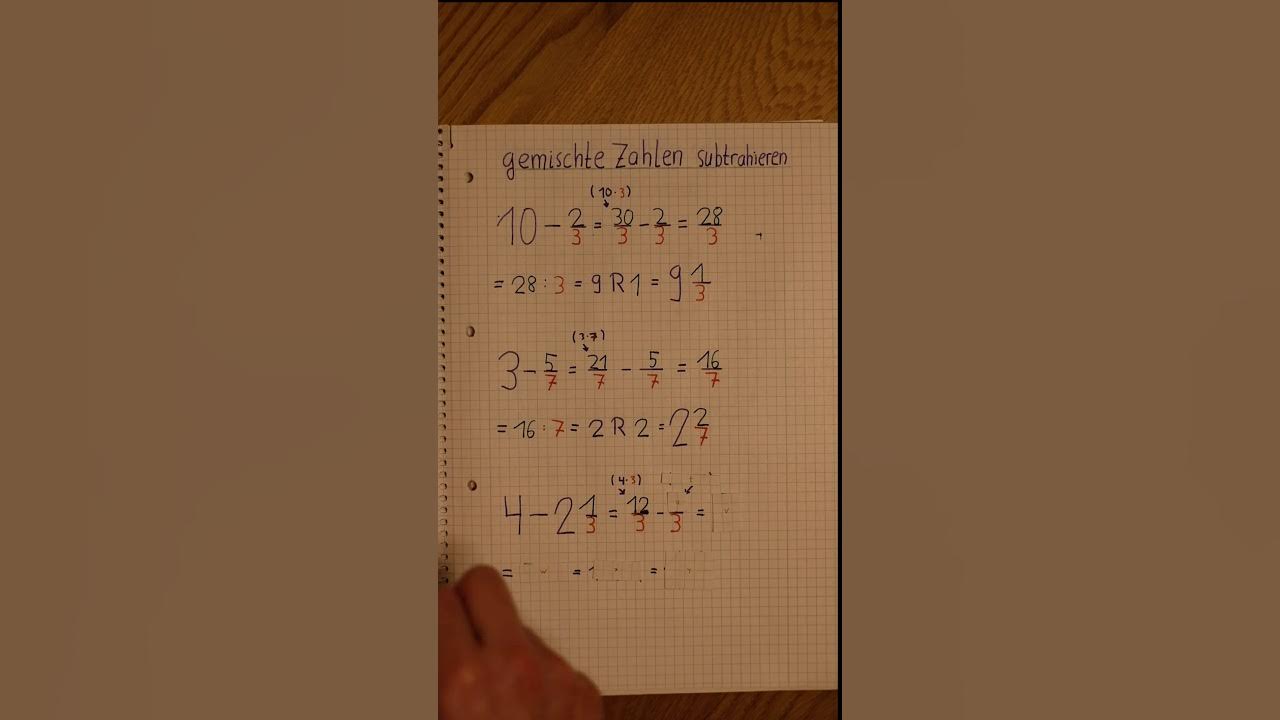 gemischte Zahlen subtrahieren
(10·3)
10 - 2/3 = 30/3 - 2/3 = 28/3
= 28 : 3 = 9 R 1 = 9 1/3
(3·7)
3 - 5/7 = 21/7 - 5/7 = 16/7
= 16 : 7 = 2 R 2 = 2 2/7
(4·3)
4 - 2 1/3 = 12/3 - /3 =
= = =